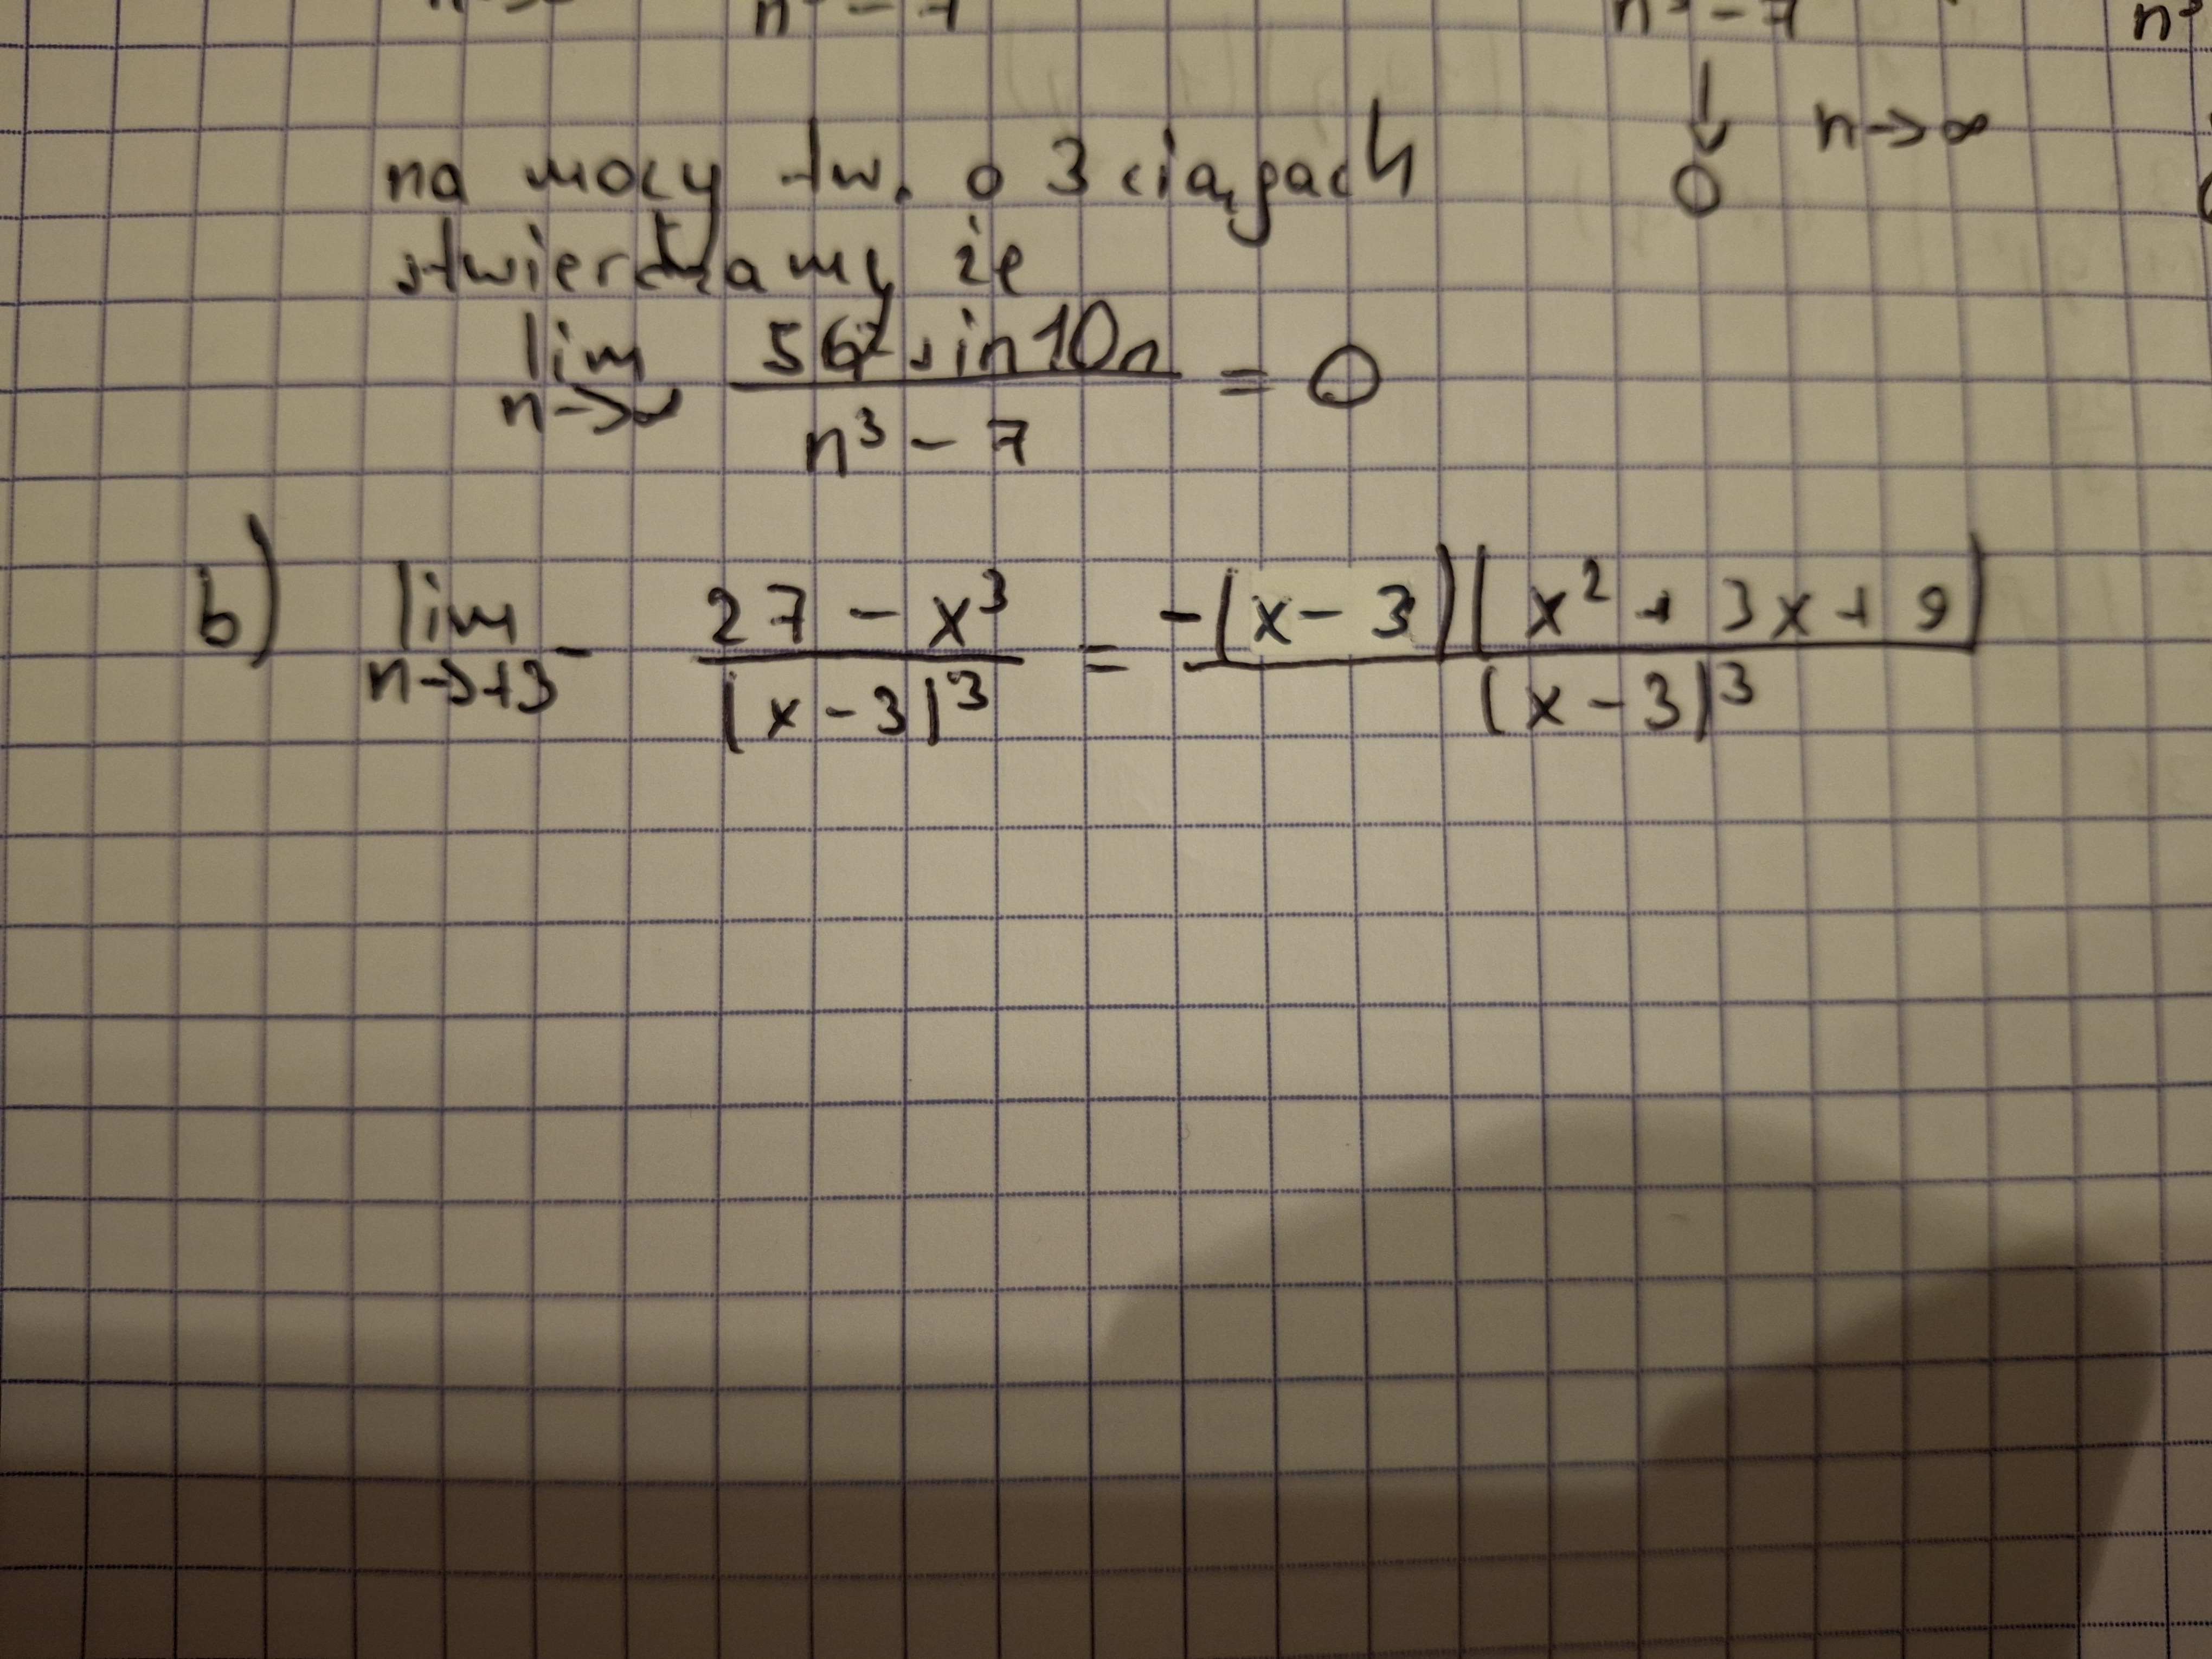 n³ - 7 n³ - 7
↓ n→∞
0
na mocy tw. o 3 ciągach
stwierdzamy że
lim 56² sin 10n = 0
n→∞ n³ - 7
b) lim 27 - x³ = -(x - 3)(x² + 3x + 9)
n→+3⁻ (x - 3)³ (x - 3)³